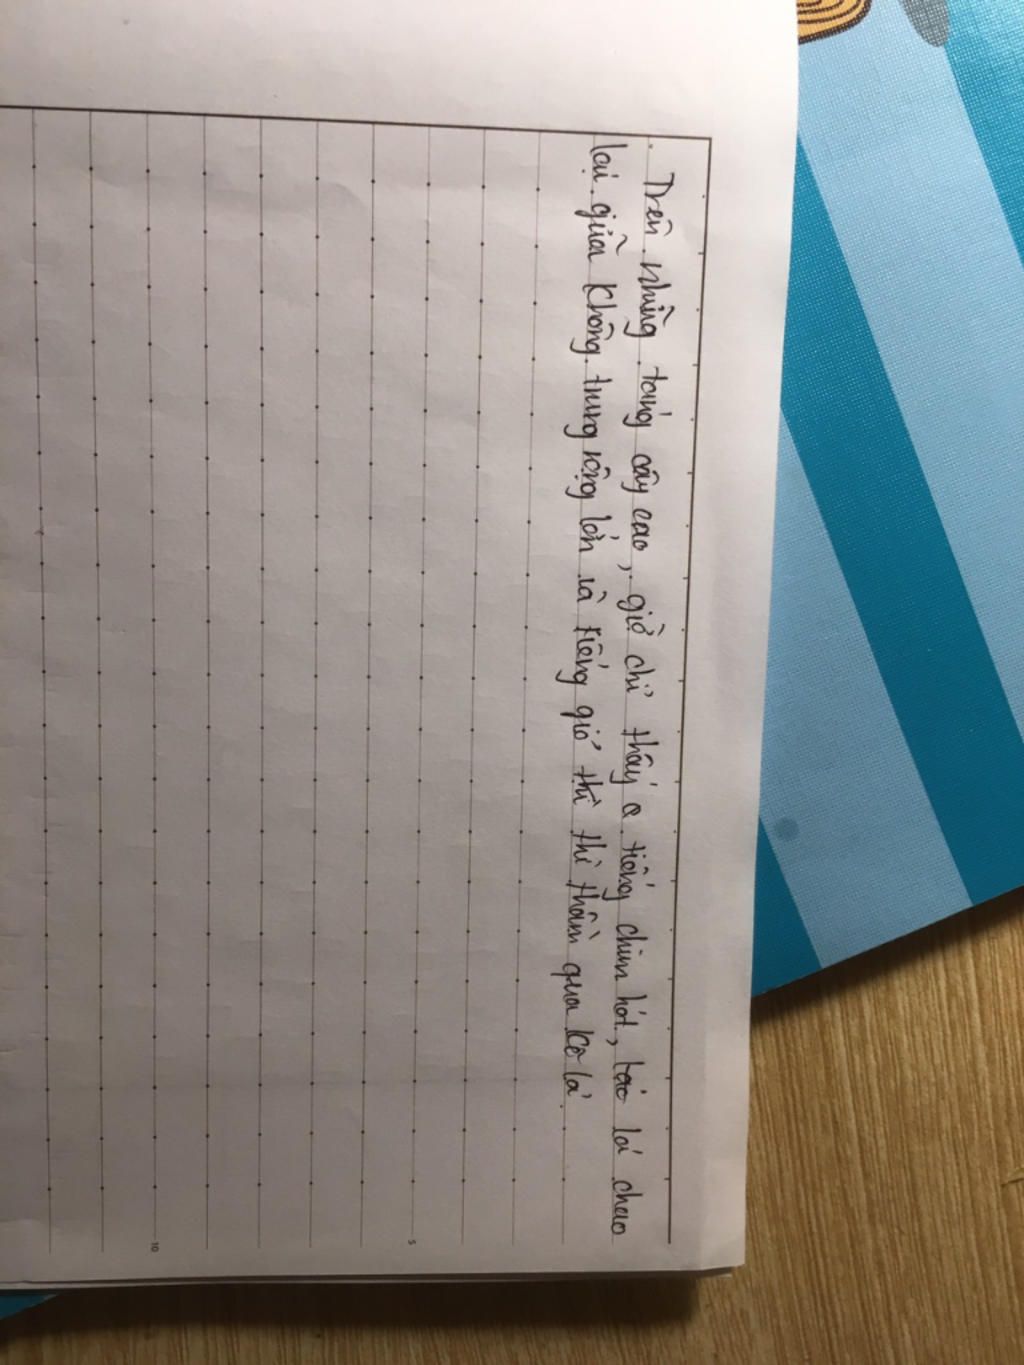 Trên những táng cây cao, giờ chỉ thấy a tiếng chim hót, tán lá chao
lại giữa không trung rộng lớn và tiếng gió thì thì thầm qua kẽ lá.
5
10